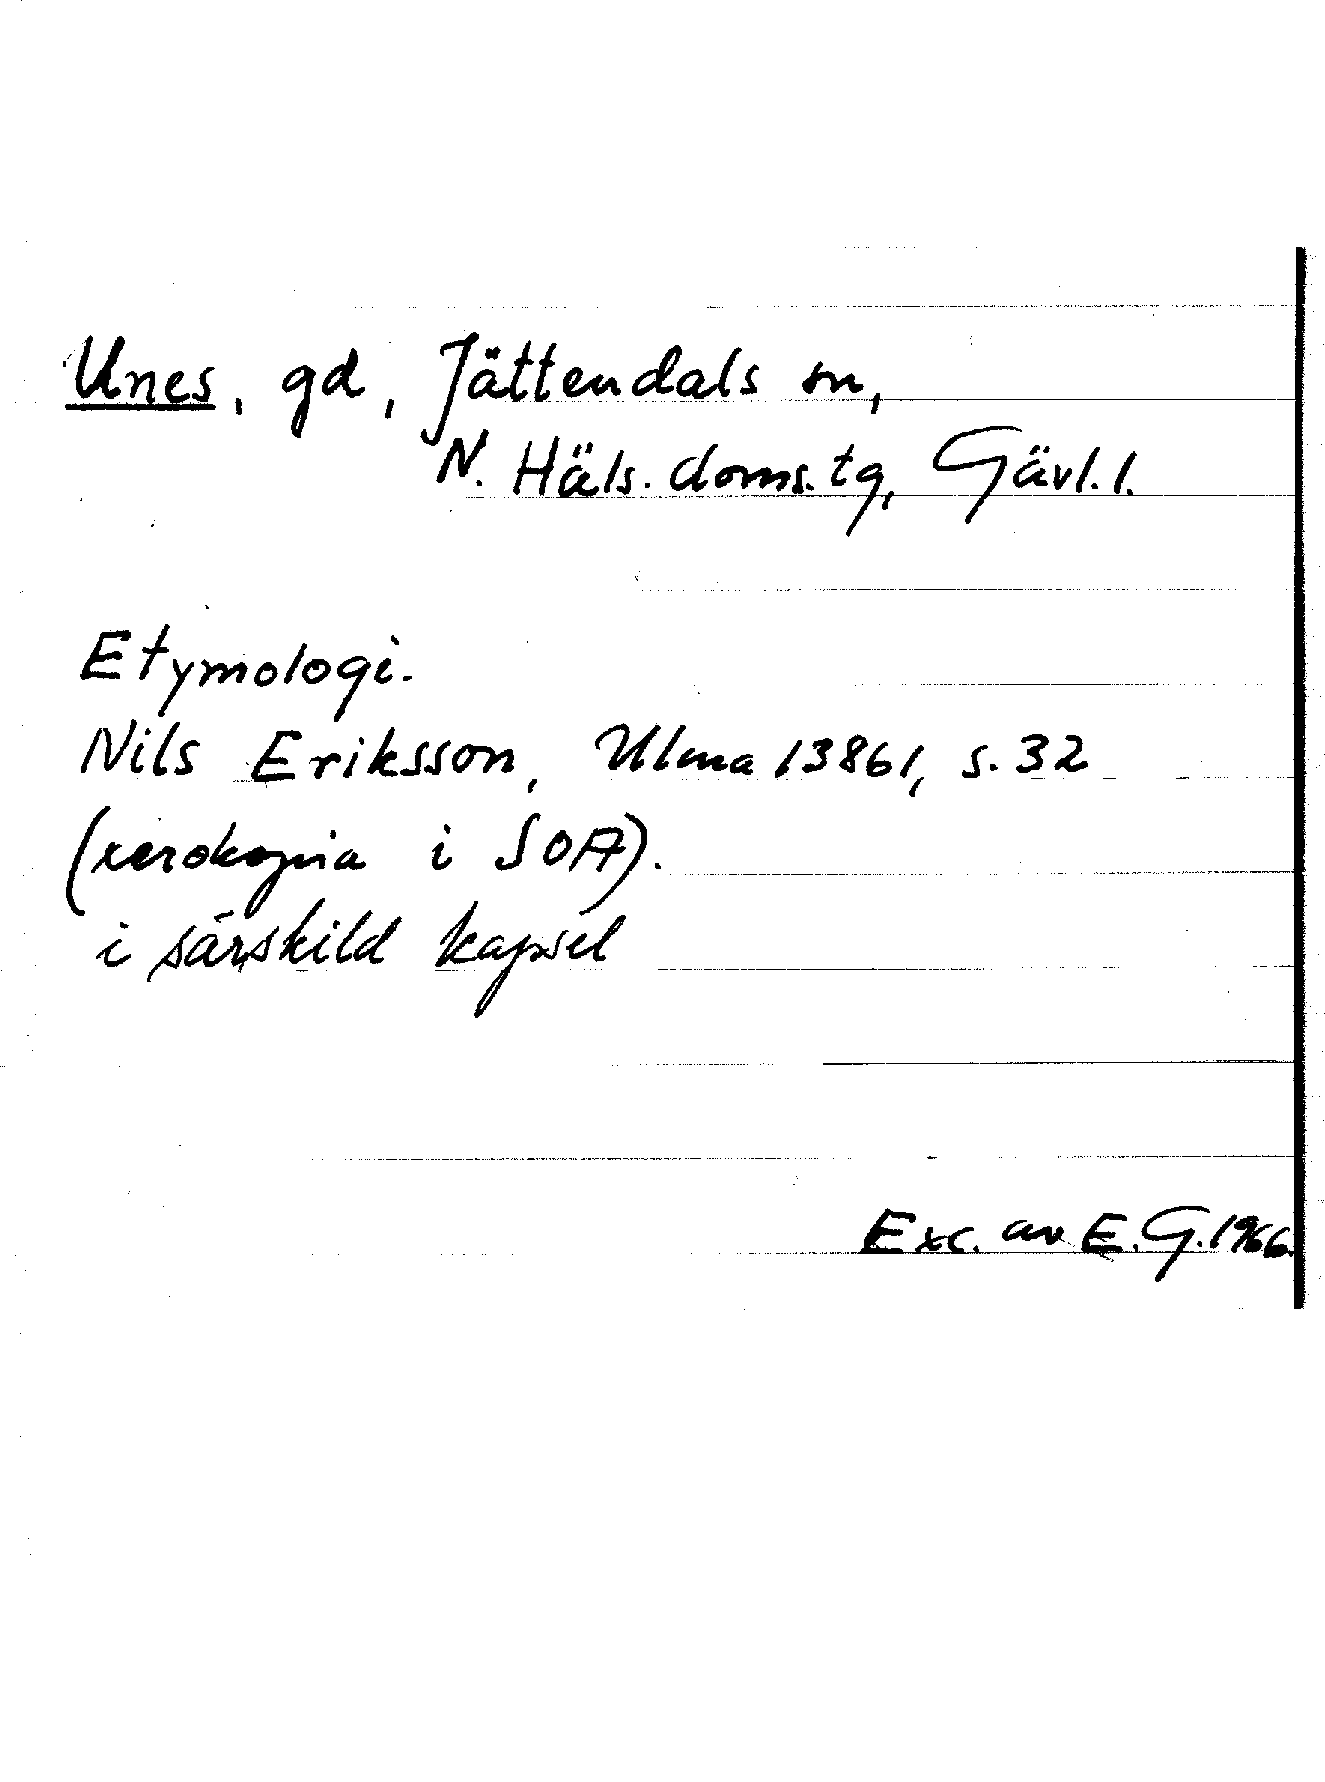 Unes, gd, Jättendals sn,
N. Häls. doms. tg, Gävl. l.
Etymologi.
Nils Eriksson, Ulma 13861, s. 32
(xerokopia i SOA).
i särskild kapsel
Exc. av E. G. 1966.